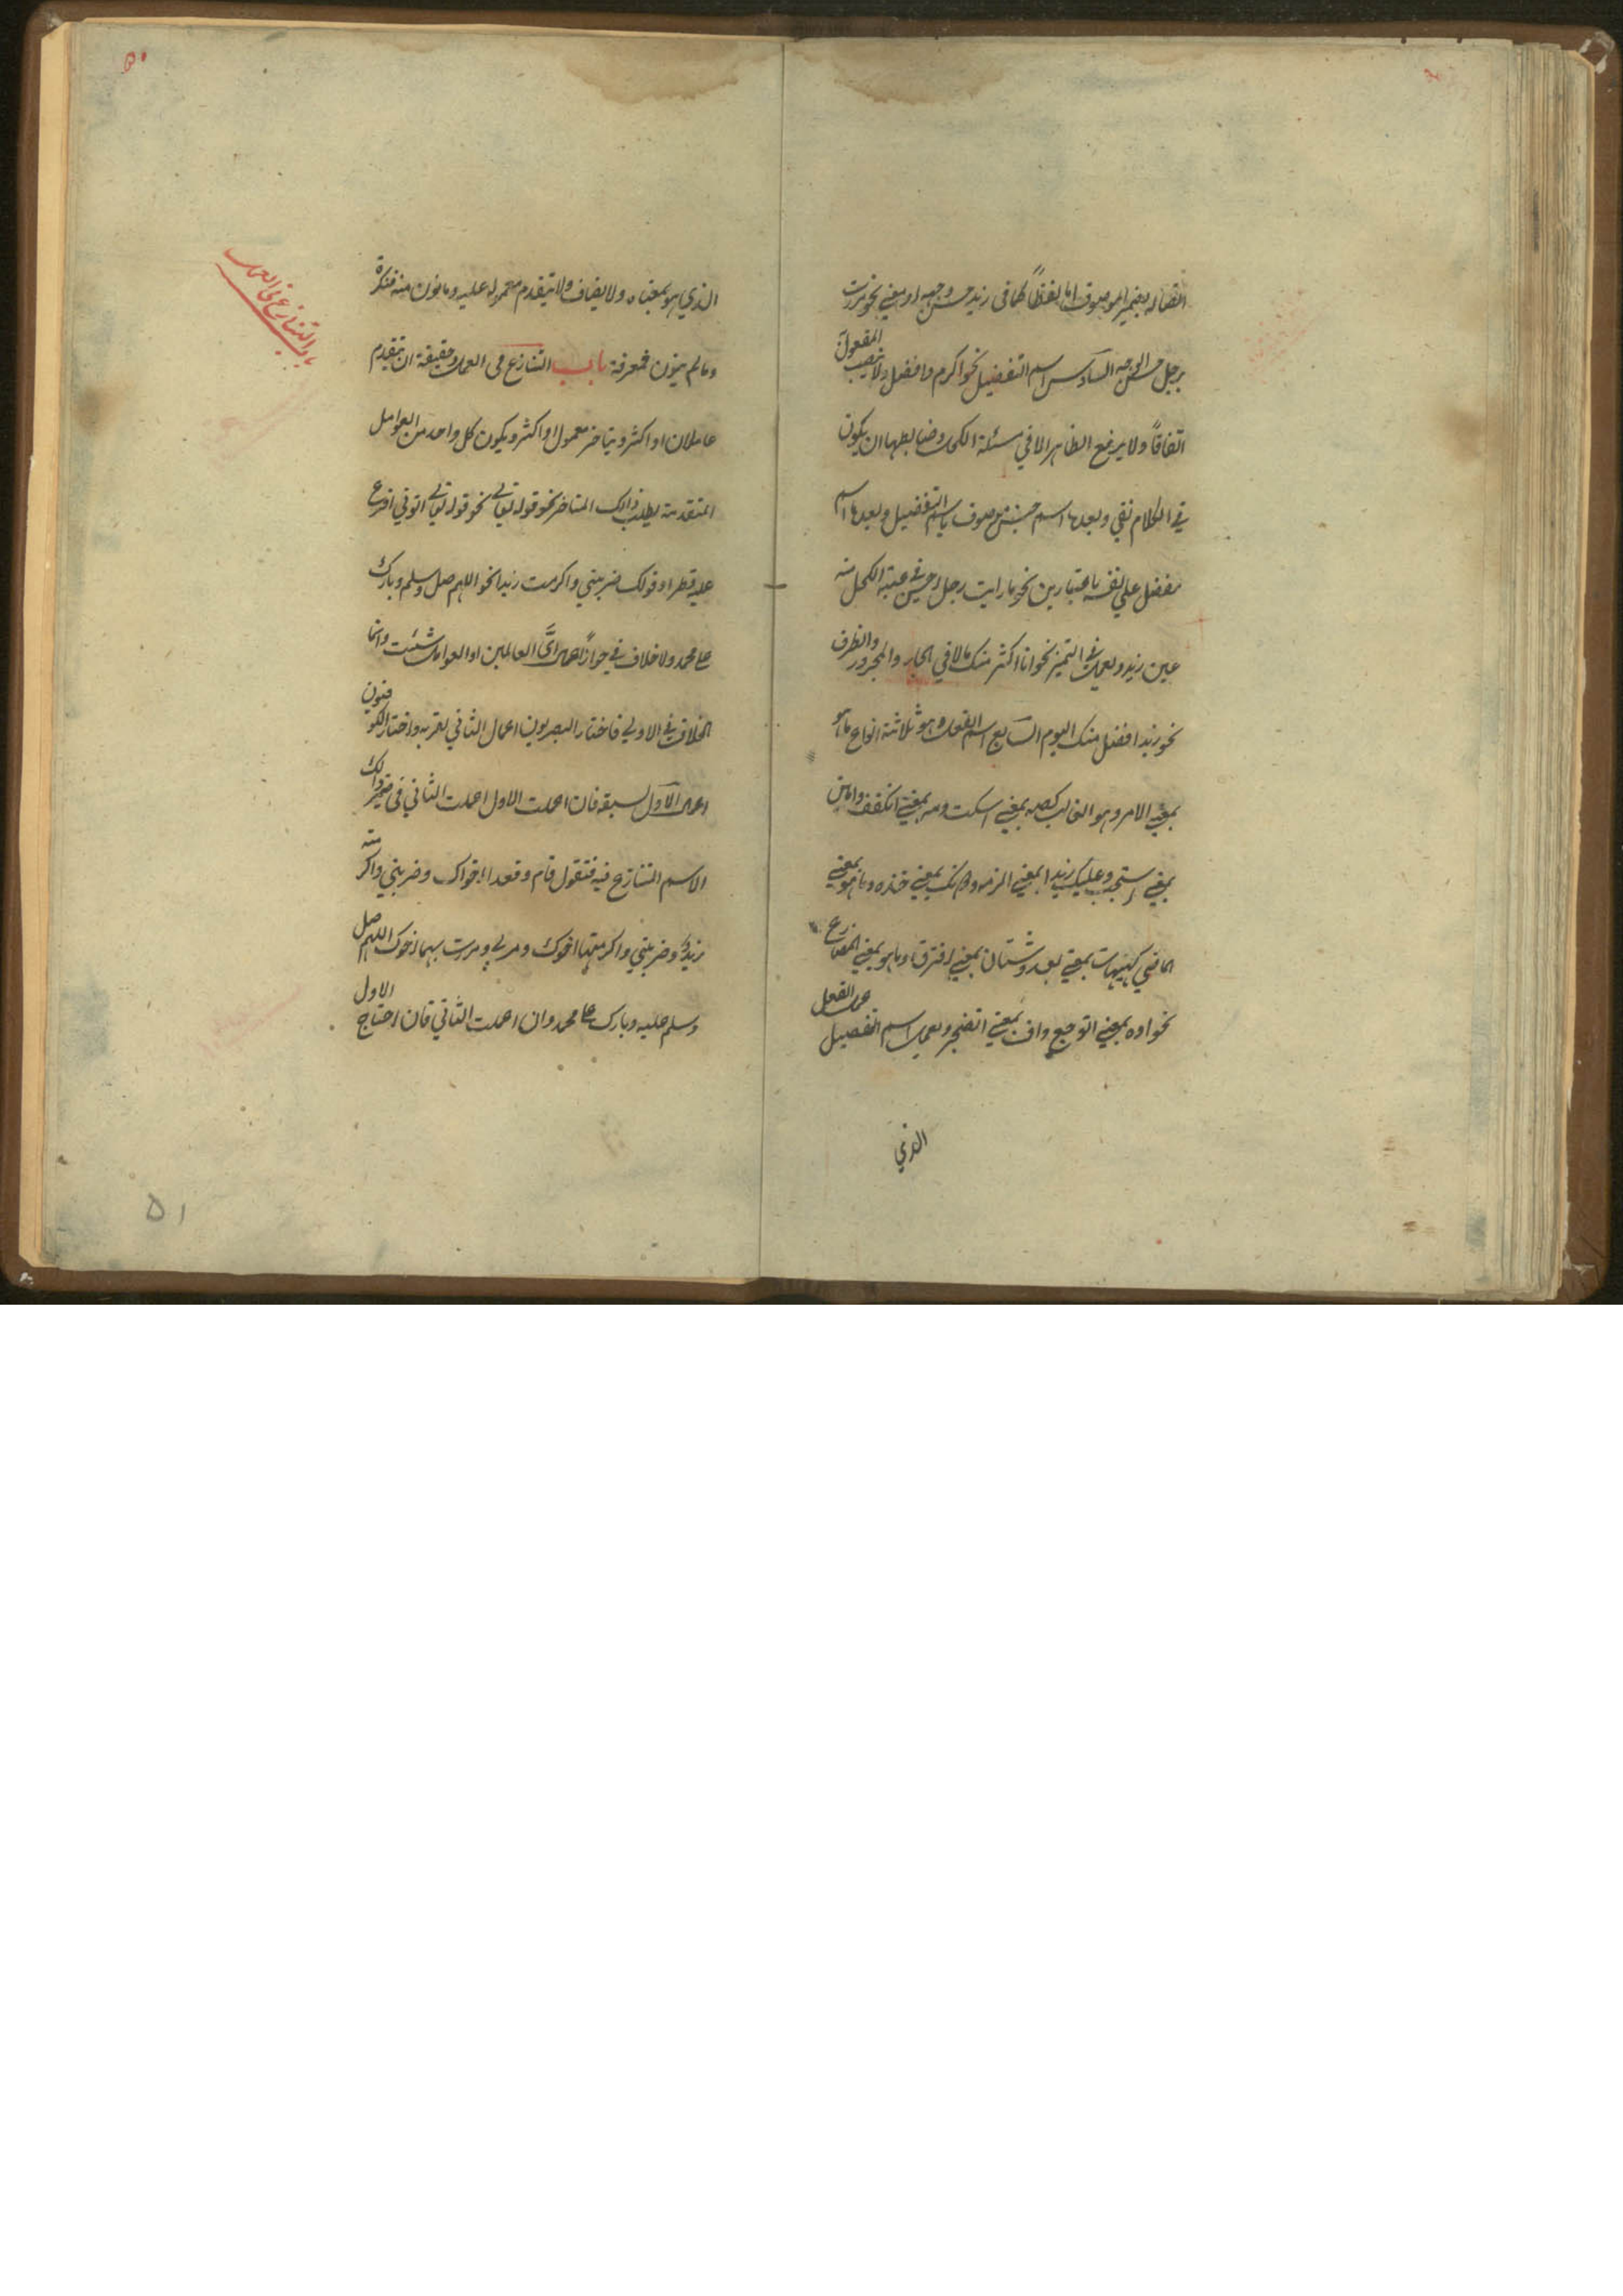 اتصاله بضمير الموصوف اما لفظاً كما في زيد حسن وجهه او معنى نحو مررت
برجل حسن الوجه السادس اسم التفضيل نحو اكرم وافضل ولا ينصب المفعول
اتفاقاً ولا يرفع الظاهر الا في مسئلة الكحل وضابطها ان يكون
في الكلام نفي وبعدها اسم جنس موصوف باسم التفضيل وبعدها اسم
مفضل على نفسه باعتبارين نحو ما رايت رجل احسن في عينه الكحل منه
عين زيد ويعمل في التميز نحو انا اكثر منك مالا في الجار والمجرور والظرف
نحو زيد افضل منك اليوم السابع اسم الفعل وهو ثلاثة انواع ما هو
بمعنى الامر وهو الغالب كصه بمعنى اسكت ومه بمعنى انكفف وامين
بمعنى استجب وعليك زيدا بمعنى الزمه ودونك بمعنى خذه وما هو بمعنى
الماضي كهيهات بمعنى بعد وشتان بمعنى افترق وما هو بمعنى المضارع
نحو اوه بمعنى اتوجع واف بمعنى اتضجر ويعمل اسم الفعل عمل الفعل
الذي
۵۰
الذي هو بمعناه ولا يضاف ولا يتقدم معموله عليه وما نون منه فنكرة
وما لم ينون فمعرفة باب التنازع في العمل وحقيقة ان يتقدم
باب التنازع في العمل
عاملان او اكثر ويتاخر معمول او اكثر ويكون كل واحد من العوامل
المتقدمة يطلب ذلك المتاخر نحو قوله تعالى نحو قوله تعالى اتوني افرغ
عليه قطرا وقولك ضربني واكرمت زيدا نحو اللهم صل وسلم وبارك
على محمد ولا خلاف في جواز اعمال اىّ العالمين او العوامل شئت وانما
الخلاف في الاولى فاختار البصريون اعمال الثاني لقربه واختار الكوفيون
اعمال الاول لسبقه فان اعملت الاول اعملت الثاني في ضمير ذلك
الاسم المتنازع فيه فتقول قام وقعدا اخواك وضربني واكرمته
زيد وضربني واكرمتهما اخوك ومر بي ومررت بهما اخوك اللهم صل
وسلم عليه وبارك على محمد وان اعملت الثاني فان احتاج الاول
۵۱